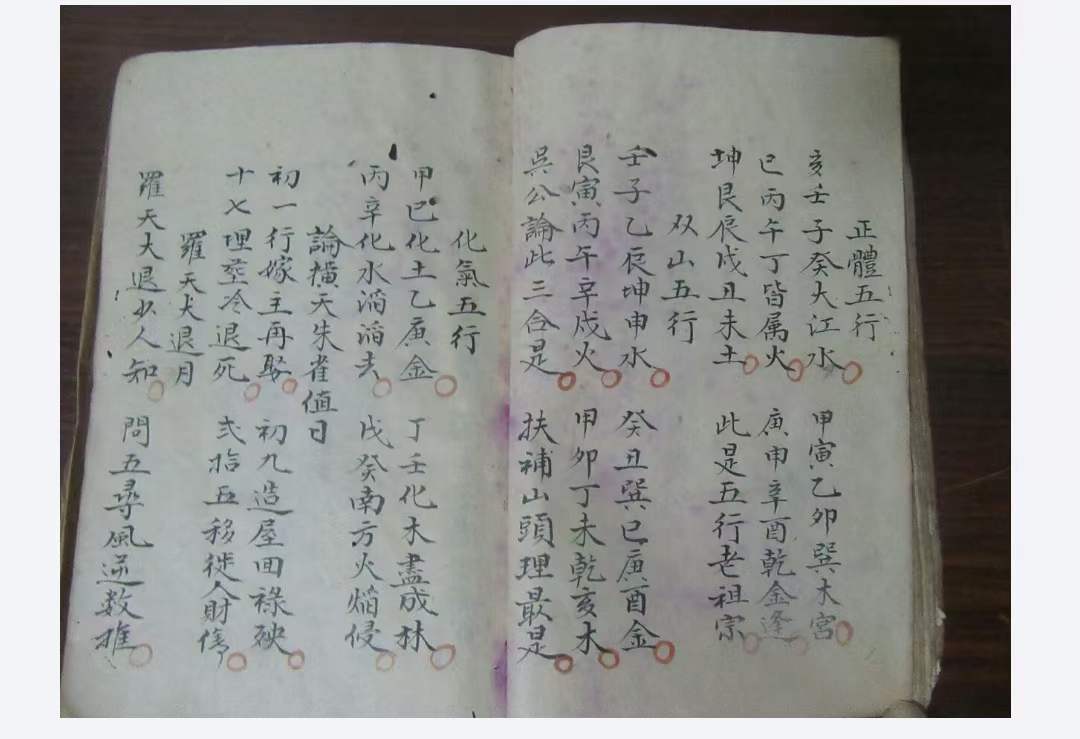 正體五行
亥壬子癸大江水 甲寅乙卯巽木宮
巳丙午丁皆属火 庚申辛酉乾金逢
坤艮辰戌丑未土 此是五行老祖宗
双山五行
壬子乙辰坤申水 癸丑巽巳庚酉金
艮寅丙午辛戍火 甲卯丁未乾亥木
吳公論此三合是 扶補山頭理最是
化氣五行
甲巳化土乙庚金 丁壬化木盡成林
丙辛化水滔滔去 戊癸南方火焰侵
論横天朱雀值日
初一行嫁主再娶 初九造屋回祿殃
十七埋塟冷退死 弍拾五移徙人財傷
羅天大退月
羅天大退少人知 問五尋風逆数推